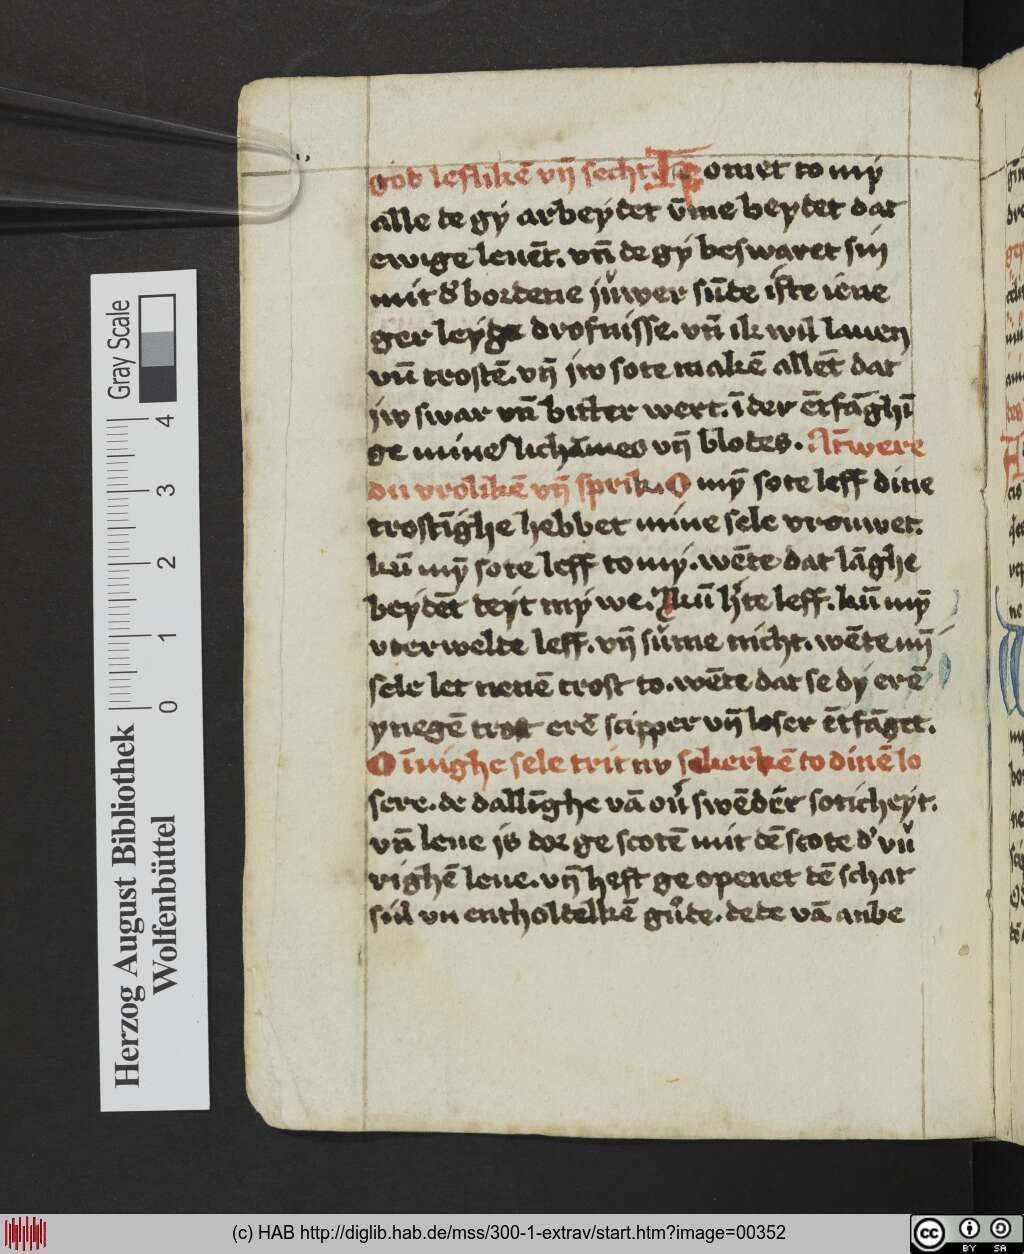 god leflikē vn̄ secht. Komet to my
alle de gy arbeydet v̄me beydet dat
ewige leuēt. vn̄ de gy beswaret sin
mit d' bordene juwer sūde ifte iēne
ger leyge drofnisse. vn̄ ik wil lauen
vn̄ trostē. vn̄ jw sote makē allēt dat
jw swar vn̄ bitter wert. ī der ētfāghī
ge mines lichāmes vn̄ blodes. Ātwere
du vrolikē vn̄ sprik. O myn̄ sote leff dine
trostīghe hebbet mine sele vrouwet.
kū myn̄ sote leff to my. wēte dat lāghe
beydēt deyt my we. Kū h'te leff. kū myn̄
vterwelde leff. vn̄ sume nicht. wēte myn̄
sele let nenē trost to. wēte dat se dy erē
ynegē trost erē scipper vn̄ loser ētfāget.
O īnighe sele trit nv sekerkē to dinē lo
sere. de dallīghe vā ouer swēdēr soticheyt.
vn̄ leue is dorgescotē mit dē scote d' vu
righē leue. vn̄ heft geopenet dē schat
sin vn entholdelkē gude. dede vā anbe
Gray Scale
0 1 2 3 4
Herzog August Bibliothek
Wolfenbüttel
(c) HAB http://diglib.hab.de/mss/300-1-extrav/start.htm?image=00352
cc BY SA